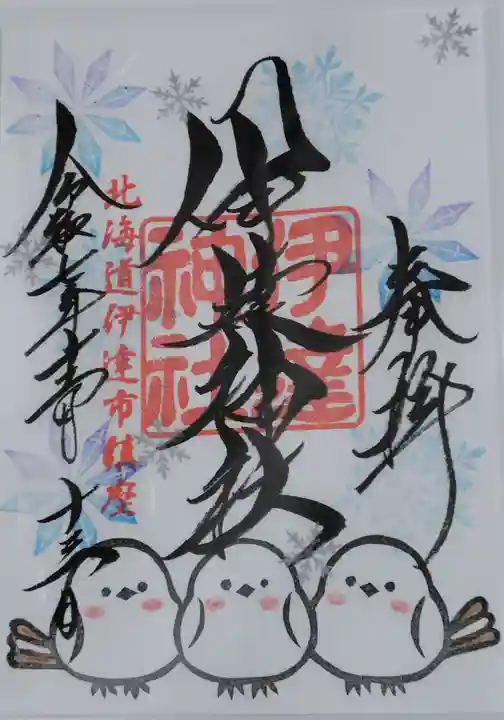 奉拝
伊達神社
伊達
神社
北海道伊達市鎮座
令和七年十一月
十五日